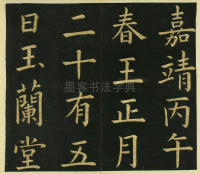 嘉靖丙午
春王正月
二十有五
日玉蘭堂
墨客书法字典